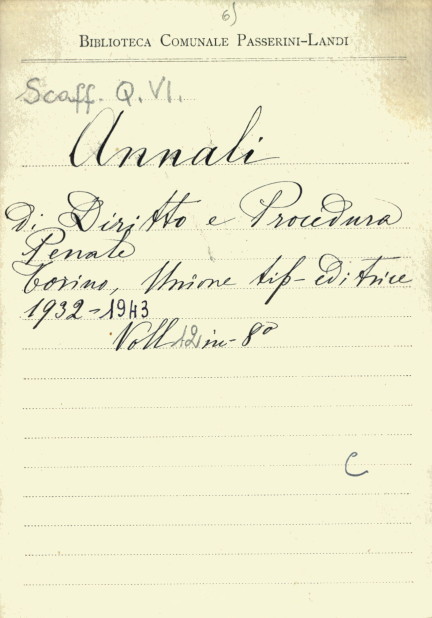 6)
BIBLIOTECA COMUNALE PASSERINI-LANDI
Scaff. Q. VI.
Annali
di Diritto e Procedura
Penale
Torino, Unione tip-editrice
1932-1943
Voll 12 in-8º
C